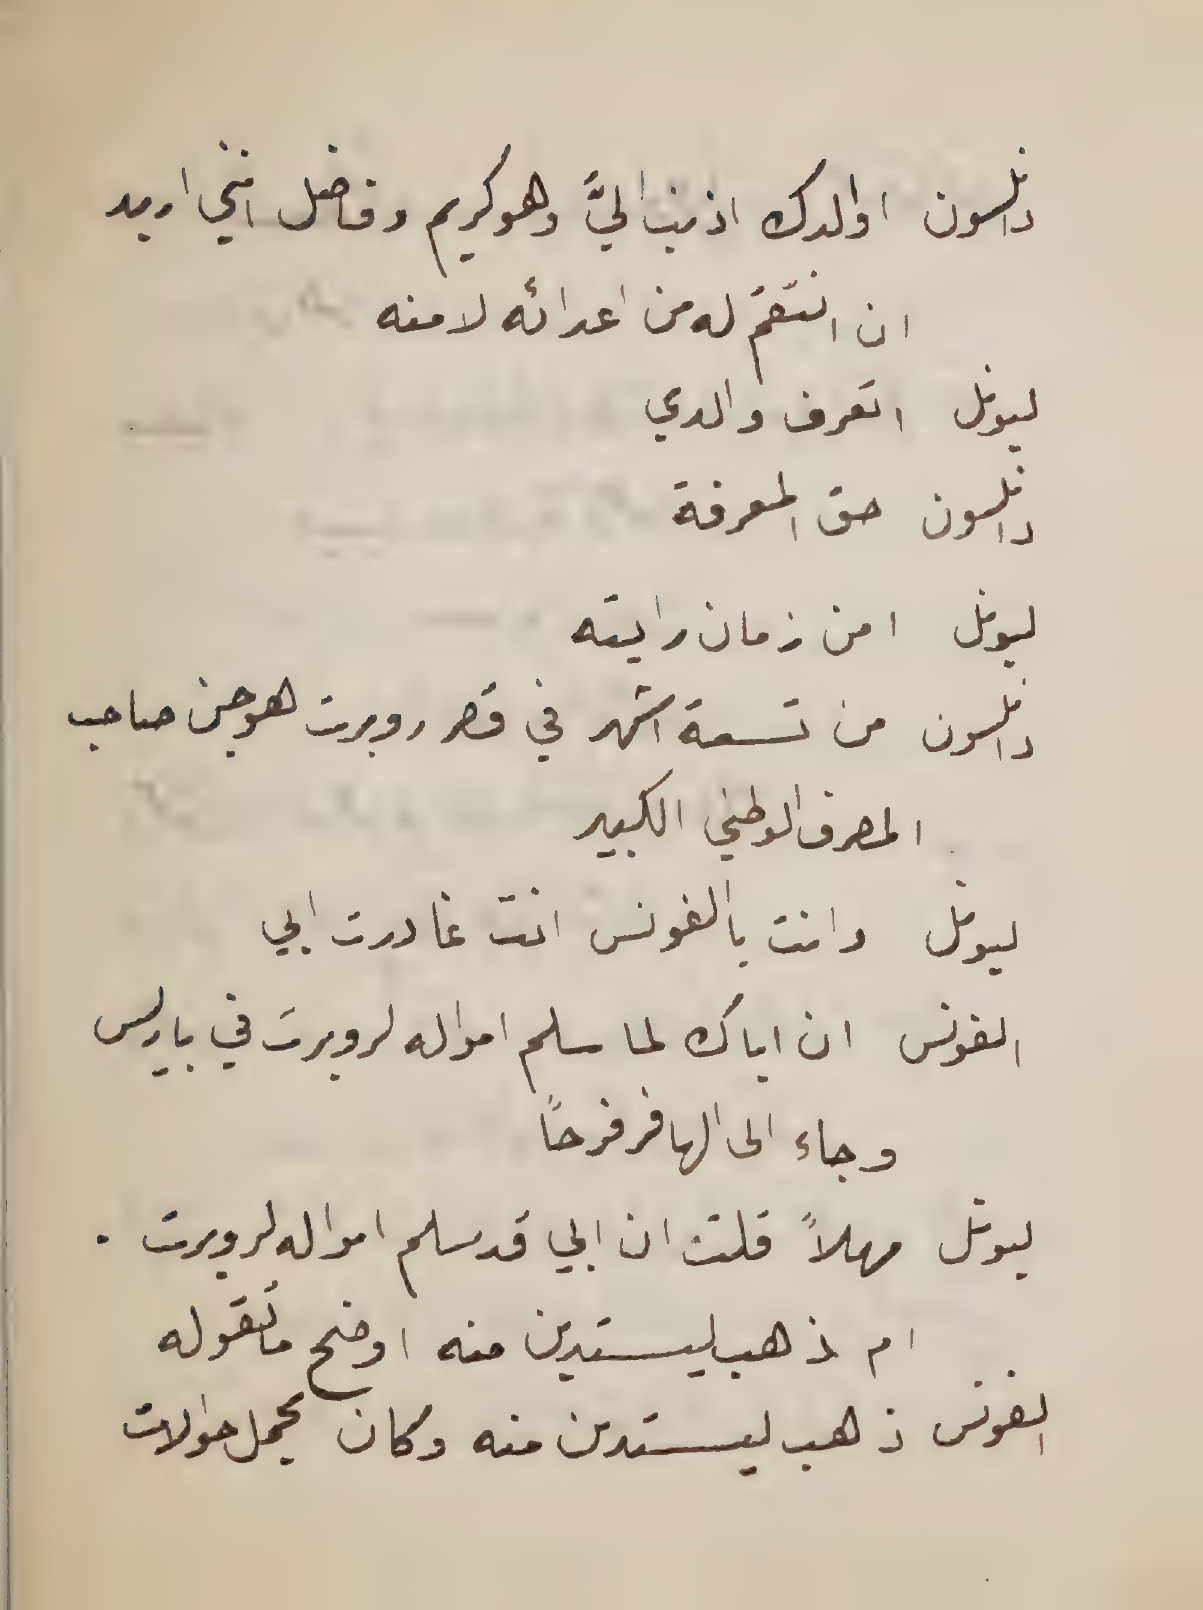 دانلسون اوالدك اذنب اليَّ وهو كريم وفاضل انني اريد
ان انتقم له من اعدائه لا منه
ليونل اتعرف والدي
دانلسون حق المعرفة
ليونل امن زمان رايته
دانلسون من تسعة اشهر في قصر روبرت هوجن صاحب
المصرف الوطني الكبير
ليونل وانت يا الفونس انت غادرت ابي
الفونس ان اباك لما سلم امواله لروبرت في باريس
وجاء الى الهافر فرحاً
ليونل مهلاً قلت ان ابي قد سلم امواله لروبرت .
ام ذهب ليستدين منه اوضح ما تقوله
الفونس ذهب ليستدين منه وكان يحمل حوالات